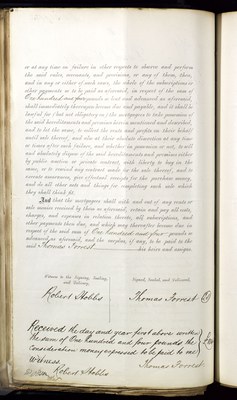 or at any time on failure in other respects to observe and perform
the said rules, covenants, and provisions, or any of them, then,
and in any or either of such cases, the whole of the subscriptions or
other payments so to be paid as aforesaid, in respect of the sum of
One hundred and four pounds so lent and advanced as aforesaid,
shall immediately thereupon become due and payable, and it shall be
lawful for (but not obligatory on) the mortgagees to take possession of
the said hereditaments and premises herein mentioned and described,
and to let the same, to collect the rents and profits on their behalf
until sale thereof, and also at their absolute discretion at any time
or times after such failure, and whether in possession or not, to sell
and absolutely dispose of the said hereditaments and premises either
by public auction or private contract, with liberty to buy in the
same, or to rescind any contract made for the sale thereof, and to
execute assurances, give effectual receipts for the purchase money,
and do all other acts and things for completing such sale which
they shall think fit.
And that the mortgagees shall with and out of any rents or
sale monies received by them as aforesaid, retain and pay all costs,
charges, and expenses in relation thereto, all subscriptions, and
other payments then due, and which may thereafter become due in
respect of the said sum of One hundred and four pounds so
advanced as aforesaid, and the surplus, if any, to be paid to the
said Thomas Forrest his heirs and assigns.
Witness to the Signing, Sealing,
and Delivery,
Signed, Sealed, and Delivered,
Robert Stobbs
Thomas Forrest
Received the day and year first above written
the sum of One hundred and four pounds the
consideration money expressed to be paid to me
£104
Witness
Thomas Forrest
Robert Stobbs